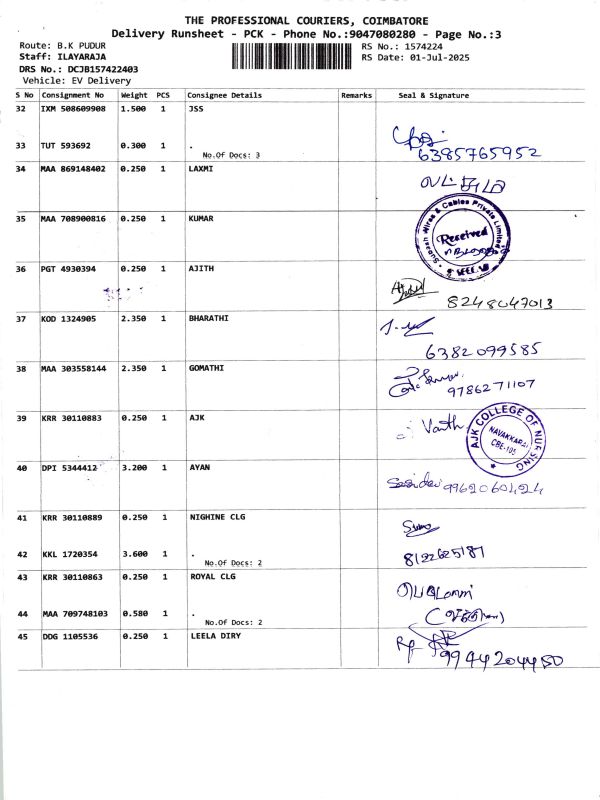 THE PROFESSIONAL COURIERS, COIMBATORE
Delivery Runsheet - PCK - Phone No.:9047080280 - Page No.:3
Route: B.K PUDUR
RS No.: 1574224
Staff: ILAYARAJA
RS Date: 01-Jul-2025
DRS No.: DCJB157422403
Vehicle: EV Delivery
S No Consignment No Weight PCS Consignee Details Remarks Seal & Signature
32 IXM 508609908 1.500 1 JSS
33 TUT 593692 0.300 1 .
6385765952
No.Of Docs: 3
34 MAA 869148402 0.250 1 LAXMI
35 MAA 708900816 0.250 1 KUMAR
Wires & Cables Private Limited
Received
36 PGT 4930394 0.250 1 AJITH
8248047013
37 KOD 1324905 2.350 1 BHARATHI
6382099585
38 MAA 303558144 2.350 1 GOMATHI
9786271107
39 KRR 30110883 0.250 1 AJK
Vasth
AJK COLLEGE OF NURSING
NAVAKKARAI
CBE-105
40 DPI 5344412 3.200 1 AYAN
Sasidevi 9962060424
41 KRR 30110889 0.250 1 NIGHINE CLG
42 KKL 1720354 3.600 1 .
8122625187
No.Of Docs: 2
43 KRR 30110863 0.250 1 ROYAL CLG
44 MAA 709748103 0.580 1 .
No.Of Docs: 2
45 DDG 1105536 0.250 1 LEELA DIRY
9944204450